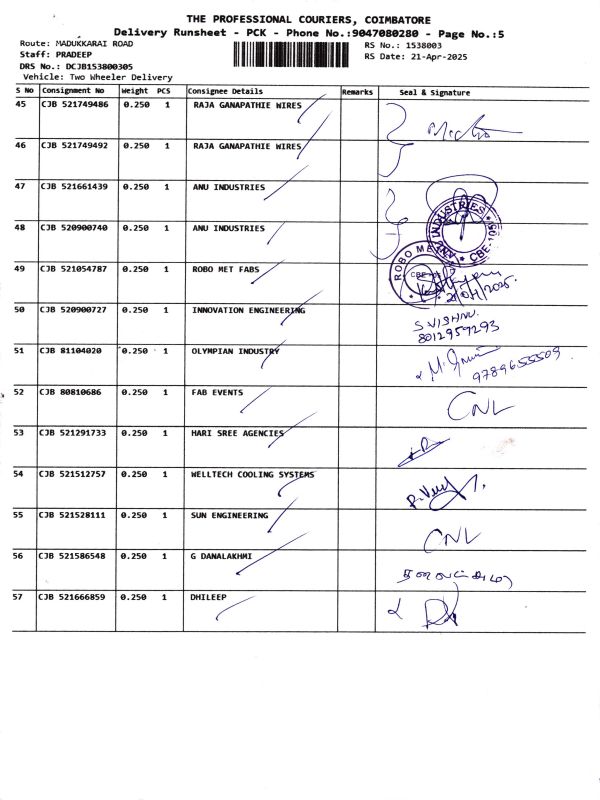 THE PROFESSIONAL COURIERS, COIMBATORE
Delivery Runsheet - PCK - Phone No.:9047080280 - Page No.:5
Route: MADUKKARAI ROAD
RS No.: 1538003
Staff: PRADEEP
RS Date: 21-Apr-2025
DRS No.: DCJB153800305
Vehicle: Two Wheeler Delivery
S No Consignment No Weight PCS Consignee Details Remarks Seal & Signature
45 CJB 521749486 0.250 1 RAJA GANAPATHIE WIRES
46 CJB 521749492 0.250 1 RAJA GANAPATHIE WIRES
47 CJB 521661439 0.250 1 ANU INDUSTRIES
48 CJB 520900740 0.250 1 ANU INDUSTRIES
ANU INDUSTRIES CBE-105
49 CJB 521054787 0.250 1 ROBO MET FABS
ROBO ME
21/04/2025.
50 CJB 520900727 0.250 1 INNOVATION ENGINEERING
S VISHNU
8012959293
51 CJB 81104020 0.250 1 OLYMPIAN INDUSTRY
9789655509
52 CJB 80810686 0.250 1 FAB EVENTS CNL
53 CJB 521291733 0.250 1 HARI SREE AGENCIES
54 CJB 521512757 0.250 1 WELLTECH COOLING SYSTEMS
55 CJB 521528111 0.250 1 SUN ENGINEERING CNL
56 CJB 521586548 0.250 1 G DANALAKHMI
57 CJB 521666859 0.250 1 DHILEEP